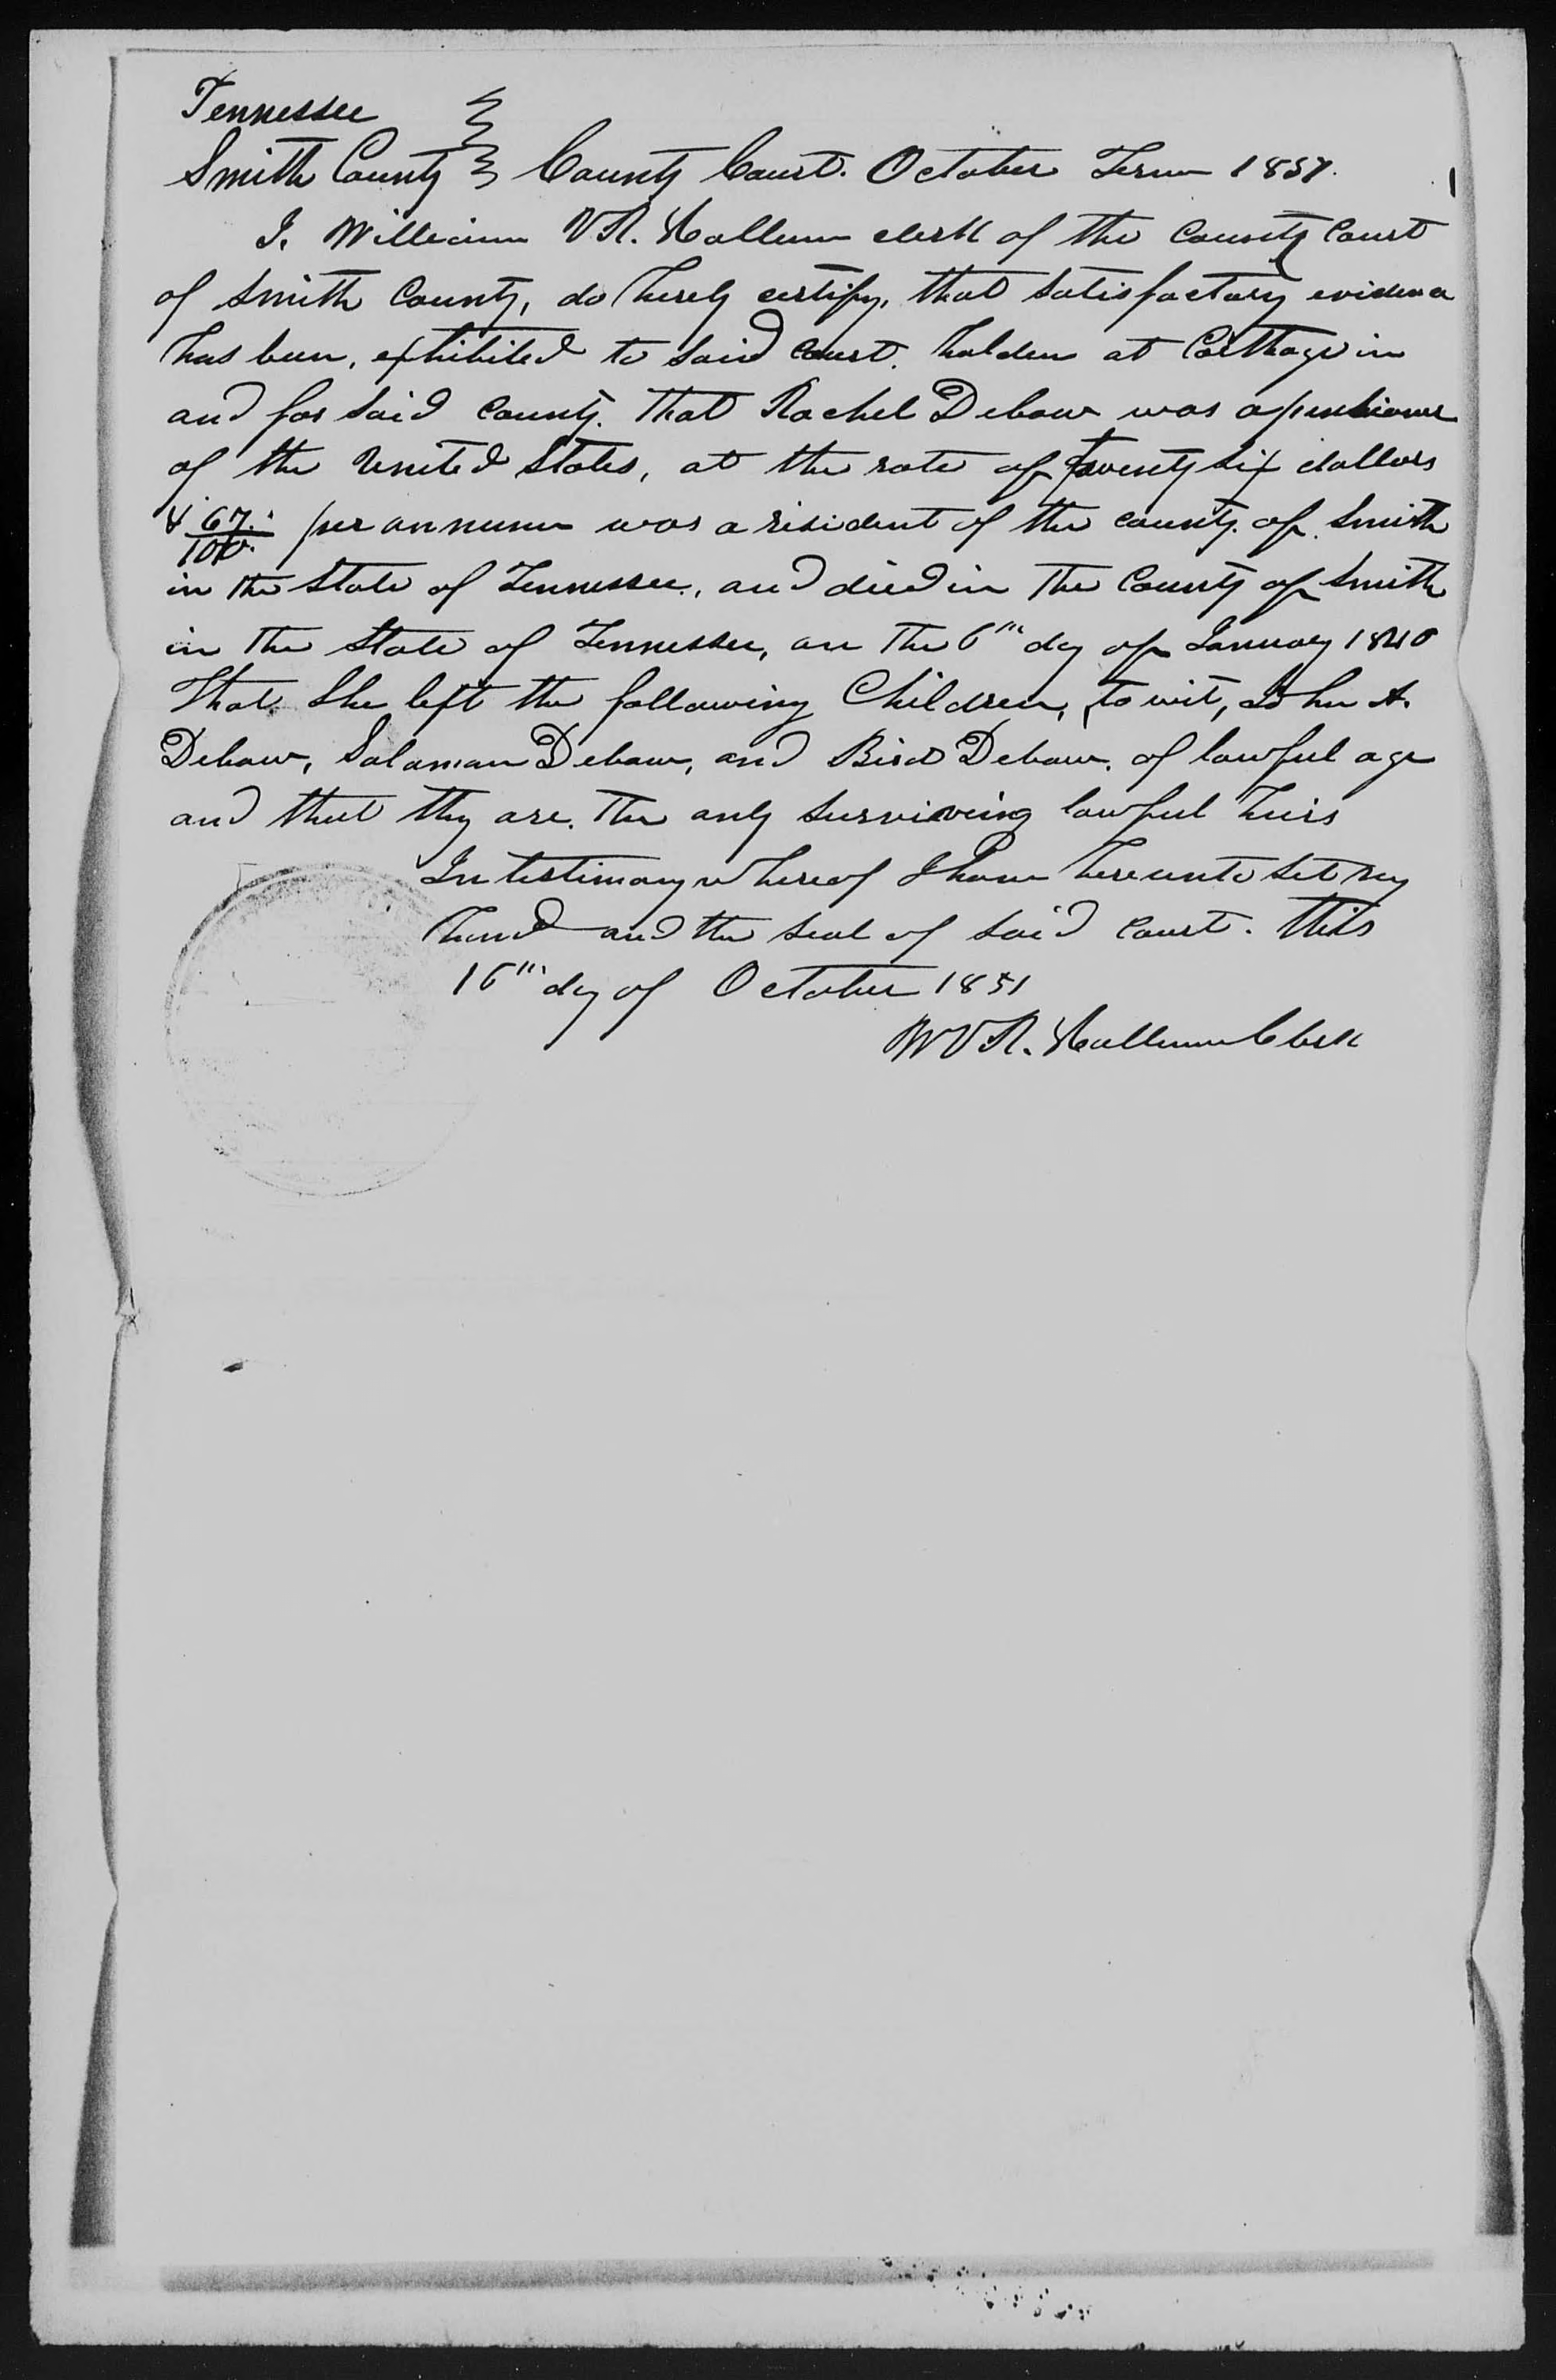 Tennessee
Smith County County Court. October Term 1851.
I. William V R. Hallum clerk of the County Court
of Smith County, do hereby certify, that satisfactory evidence
has been, exhibited to said Court. holden at Carthage in
and for said County. that Rachel Debow was a pensioner
of the United States, at the rate of twenty six dollars
& 67/100 per annum was a resident of the County of Smith
in the State of Tennessee, and died in the County of Smith
in the State of Tennessee, on the 6th day of January 1840
That she left the following Children, to wit, John A.
Debow, Solomon Debow, and Bird Debow. of lawful age
and that they are. the only surviving lawful heirs
In testimony whereof I have hereunto set my
hand and the seal of said Court. this
16th day of October 1851
W V R. Hallum Clerk